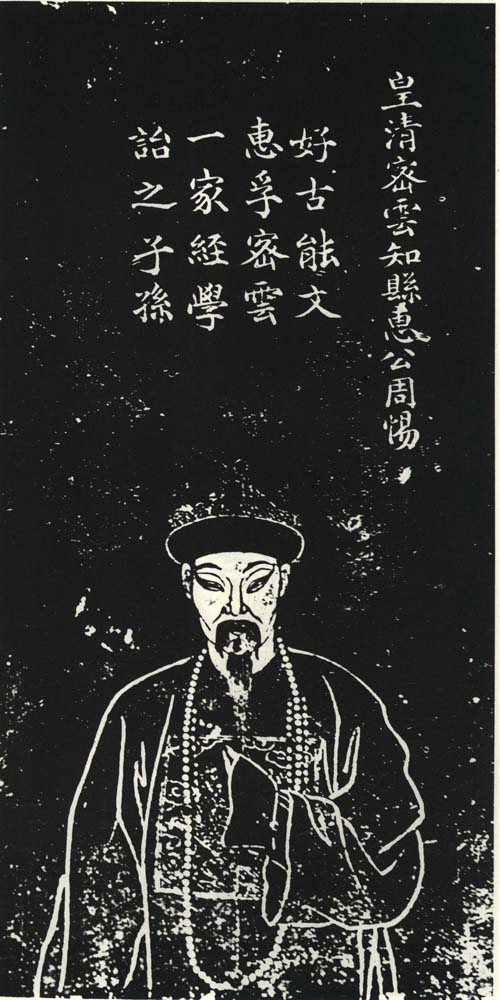 皇清密雲知縣惠公周惕
好古能文
惠孚密雲
一家經學
詒之子孫